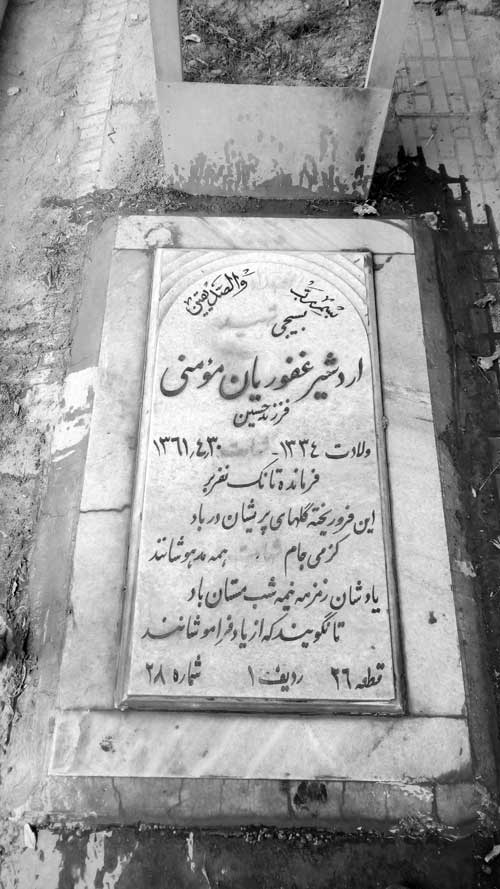 والصدیقین
بسیجی
اردشیر غفوریان مؤمنی
فرزند حسین
ولادت ۱۳۳۴ - ۱۳۶۱٫۴٫۳۰
فرمانده تانک نفربر
این فرو ریخته گلهای پریشان در باد
کز می جام همه مدهوشانند
یادشان زمزمه نیمه شب مستان باد
تا نگویند که از یاد فراموشانند
قطعه ۲۶ ردیف ۱ شماره ۲۸